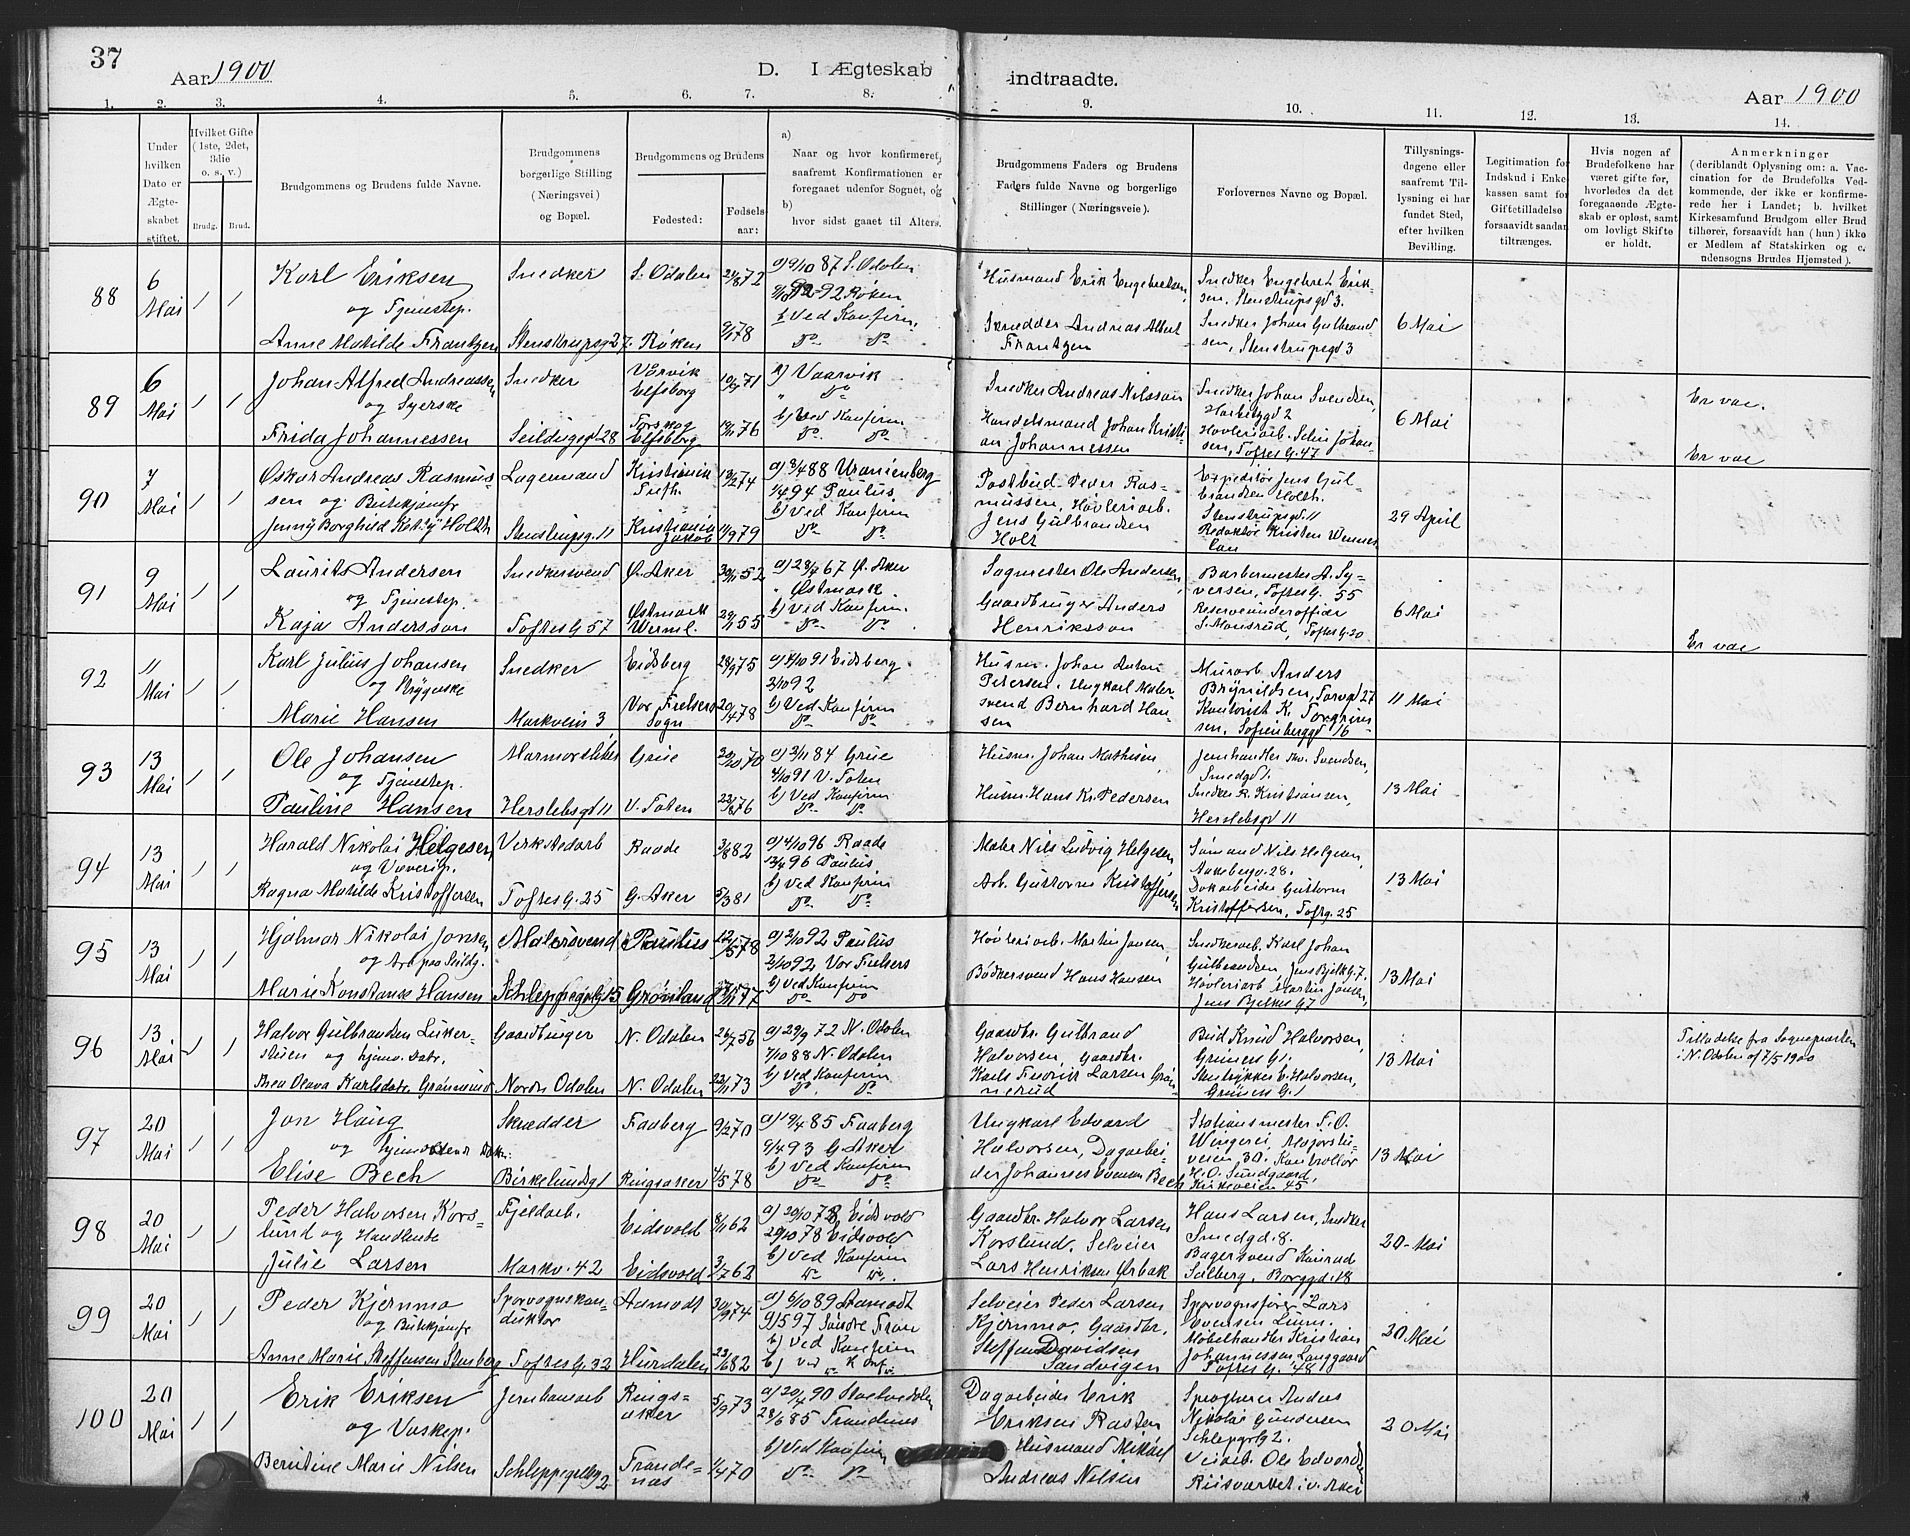 37
Aar 1900
D. I Ægteskab
indtraadte.
Aar 1900
1. 2. 3. 4. 5. 6. 7. 8. 9. 10. 11. 12. 13. 14.
Under hvilken Dato er Ægteskabet stiftet.
Hvilket Gifte (1ste, 2det, 3die o. s. v.)
Brudg. Brud.
Brudgommens og Brudens fulde Navne.
Brudgommens borgerlige Stilling (Næringsvei) og Bopæl.
Brudgommens og Brudens
Fødested:
Fødselsaar:
a) Naar og hvor konfirmeret, saafremt Konfirmationen er foregaaet udenfor Sognet, og
b) hvor sidst gaaet til Alters.
Brudgommens Faders og Brudens Faders fulde Navne og borgerlige Stillinger (Næringsveie).
Forlovernes Navne og Bopæl.
Tillysningsdagene eller saafremt Tillysning ei har fundet Sted, efter hvilken Bevilling.
Legitimation for Indskud i Enkekassen samt for Giftetilladelse forsaavidt saadan tiltrænges.
Hvis nogen af Brudefolkene har været gifte før, hvorledes da det foregaaende Ægteskab er opløst, samt om lovligt Skifte er holdt.
Anmerkninger (deriblandt Oplysning om: a. Vaccination for de Brudefolks Vedkommende, der ikke er konfirmerede her i Landet; b. hvilket Kirkesamfund Brudgom eller Brud tilhører, forsaavidt han (hun) ikke er Medlem af Statskirken og c. udensogns Brudes Hjemsted).
88 6 Mai / / Karl Eriksen og Tjenestep. Anne Matilde Frantzen
Snedker Stenstrupsg 27
S. Odalen Røken
21/8 72 9/1 78
a) 9/10 87 S. Odalen 92 Røken b) Ved Konfirm. do do
Husmand Erik Engebretsen, Skrædder Andreas Albert Frantzen
Snedker Engebret Eriksen, Stenstrupsgd 3. Snedker Johan Gulbrandsen, Stenstrupsgd 3
6 Mai
89 6 Mai / / Johan Alfred Andreassen og Syerske Frida Johannessen
Snedker Seildugsgd 28
Vårvik Elfsborg Torskog Elfsborg
71 76
a) Vaarvik " do b) Ved Konfirm do do
Snedker Andreas Nilsson Handelsmand Johan Kristian Johannessen
Snedker Johan Svendsen, Høvleriarb. Johansen, Toftes G. 47
6 Mai
Er vac. Er vac
90 7 Mai / / Oskar Andreas Rasmussen og Butikjomfr Jenny Borghild Holth
Lagermand Stenstrupsg. 11
Kristiania Kristiania Jakob
13/2 74 11/9 79
a) 3/4 88 Uranienborg 1/4 94 Paulus b) Ved Konfirm do do
Postbud Peder Rasmussen, Høvleriarb. Jens Gulbrandsen Holt
Expeditør Jens Gulbrandsen Holth. Stenstrupsgd. 11 Redaktør Kristen
29 April
91 9 Mai / / Laurits Andersen og Tjenestep. Kaja Andersson
Snedkersvend Toftes G. 57
Ø. Aker Østmark Werml.
30/11 52 55
a) 28/4 67 Ø. Aker Østmark. b) Ved Konfirm. do do
Sagmester Ole Andersen, Gaardbruger Anders Henriksson
Barbermester A. Syversen, Toftes G. 55 Reserveunderofficer S. Monsrud, Toftes G. 20
6 Mai
Er vac
92 11 Mai / / Karl Julius Johansen og Strygerske Marie Hansen
Snedker Markveien 3
Eidsberg Vor Frelsers Sogn
28/9 75 20/4 78
a) 91 Eidsberg. 2/10 92 b) Ved Konfirm do do
Husm. Johan Anton Petersen. Ungkarl Malersvend Bernhard Hansen
Murarb. Anders Brynildsen, Torvgd 27 Kontorist K. Torghinsen, Sofienberggd 16
11 Mai
93 13 Mai / / Ole Johansen og Tjenestep. Pauline Hansen
Marmorsliber Herslebsgd 11
Grue V. Toten
22/10 70 23/8 76
a) 2/11 84 Grue 4/10 91 V. Toten b) Ved Konfirm do do
Husm. Johan Mathisen, Husm. Hans Kr. Pedersen
Jernhandler Svendsen, Smedgd. Snedker R. Kristiansen, Herslebsgd 11
13 Mai
94 13 Mai / / Harald Nikolai Helgesen og Væverip. Ragna Matilde Kristoffersen
Verkstedarb Toftes G. 25
Raade G. Aker
3/8 82 5/3 81
a) 4/10 96 Raade 96 Paulus b) Ved Konfirm do do
Maler Nils Ludvig Helgesen, Arb. Gustovus Kristoffersen
Sømand Nils Helgesen, 28. Dokarbeider Gustovus Kristoffersen, Toftg. 25
13 Mai
95 13 Mai / / Hjalmar Nikolai Jonsen og Arb. paa Seildg. Marie Konstanse Hansen
Malersvend Schleppegrelsgd 5
Paulus Grønland
12/5 78 77
a) 2/10 92 Paulus 2/10 92 Vor Frelsers b) Ved Konfirm do do
Høvleriarb. Martin Jonsen, Bødkersvend Hans Hansen
Snedkerarb. Karl Johan Gulbrandsen, Jens Bjelkes G. 7. Høvleriarb Martin Jonsen, Jens Bjelkes G 7
13 Mai
96 13 Mai / / Halvor Gulbrandsen og hjemv. Datr. Thea Olava Karlsdatr. Grønnerud
Gaardbruger Nordre Odalen
N. Odalen N. Odalen
26/7 56 22/11 73
a) 29/9 72 N. Odalen 7/10 88 N. Odalen b) Ved Konfirm do do
Gaardbr. Gulbrand Halvorsen, Gaardbr. Karls Fredrik Larsen Grønnerud
Bud Knud Halvorsen, Grüners G 1. Stentrykker E. Halvorsen, Grüners G. 1
13 Mai
Tilladelse fra Sognepresten i N. Odalen af 7/5 1900
97 20 Mai / / Jon Haug og hjemværende Datr. Elise Bech
Skrædder Birkelundsgd 1
Faaberg Ringsaker
9/2 70 4/5 78
a) 85 Faaberg 9/4 93 G. Aker b) Ved Konfirm do do
Ungkarl Edvard Halvorsen, Dagarbeider Johannes Svensen Bech
Stationsmester T. O. Wingerei, Majorstuveien 30. Kontrollør H. O. Sundgaard, Kirkeveien 45
13 Mai
98 20 Mai / / Peder Halvorsen Korslund og Handlende Julie Larsen
Fjeldarb. Markv. 42
Eidsvold Eidsvold
8/11 62 3/7 62
a) 20/10 78 Eidsvold 20/10 78 Eidsvold b) Ved Konfirm do do
Gaardbr. Halvor Larsen Korslund, Selveier Lars Henriksen Ørbak
Hans Larsen, Snedker Smedgd. 8. Bagersvend Konrad Solberg, Borggd. 18
20 Mai
99 20 Mai / / Peder Kjernmo og Butikjomfr Anne Marie Steffensen Stenberg
Sporvognskonduktør Toftes G. 32
Aamodt Hurdalen
30/9 74 23/6 82
a) 6/10 89 Aamodt 9/5 97 Søndre Fron b) Ved Konfirm b) ved Konf
Selveier Peder Larsen Kjernmo, Gaardbr. Steffen Davidsen Sandvigen
Sporvognsfører Lars Svensen Lium. Møbelhandler Kristian Johannessen Langgaard Toftes G. 48
20 Mai
100 20 Mai / / Erik Eriksen og Vaskep. Berntine Marie Nilsen
Jernbanearb Schleppegrelsg 2
Ringsaker Trondenæs
5/9 73 1/4 70
a) 90 28/6 85 Trondenæs b) Ved Konfirm do do
Dagarbeider Erik Eriksen Rasten Husmand Mikael Andreas Nilsen
Sprogfører Anders Nikolai Gundersen Schlepgrlg 2. Veiarb. Ole Edvard Riisvarbet i v. Aker
20 Mai